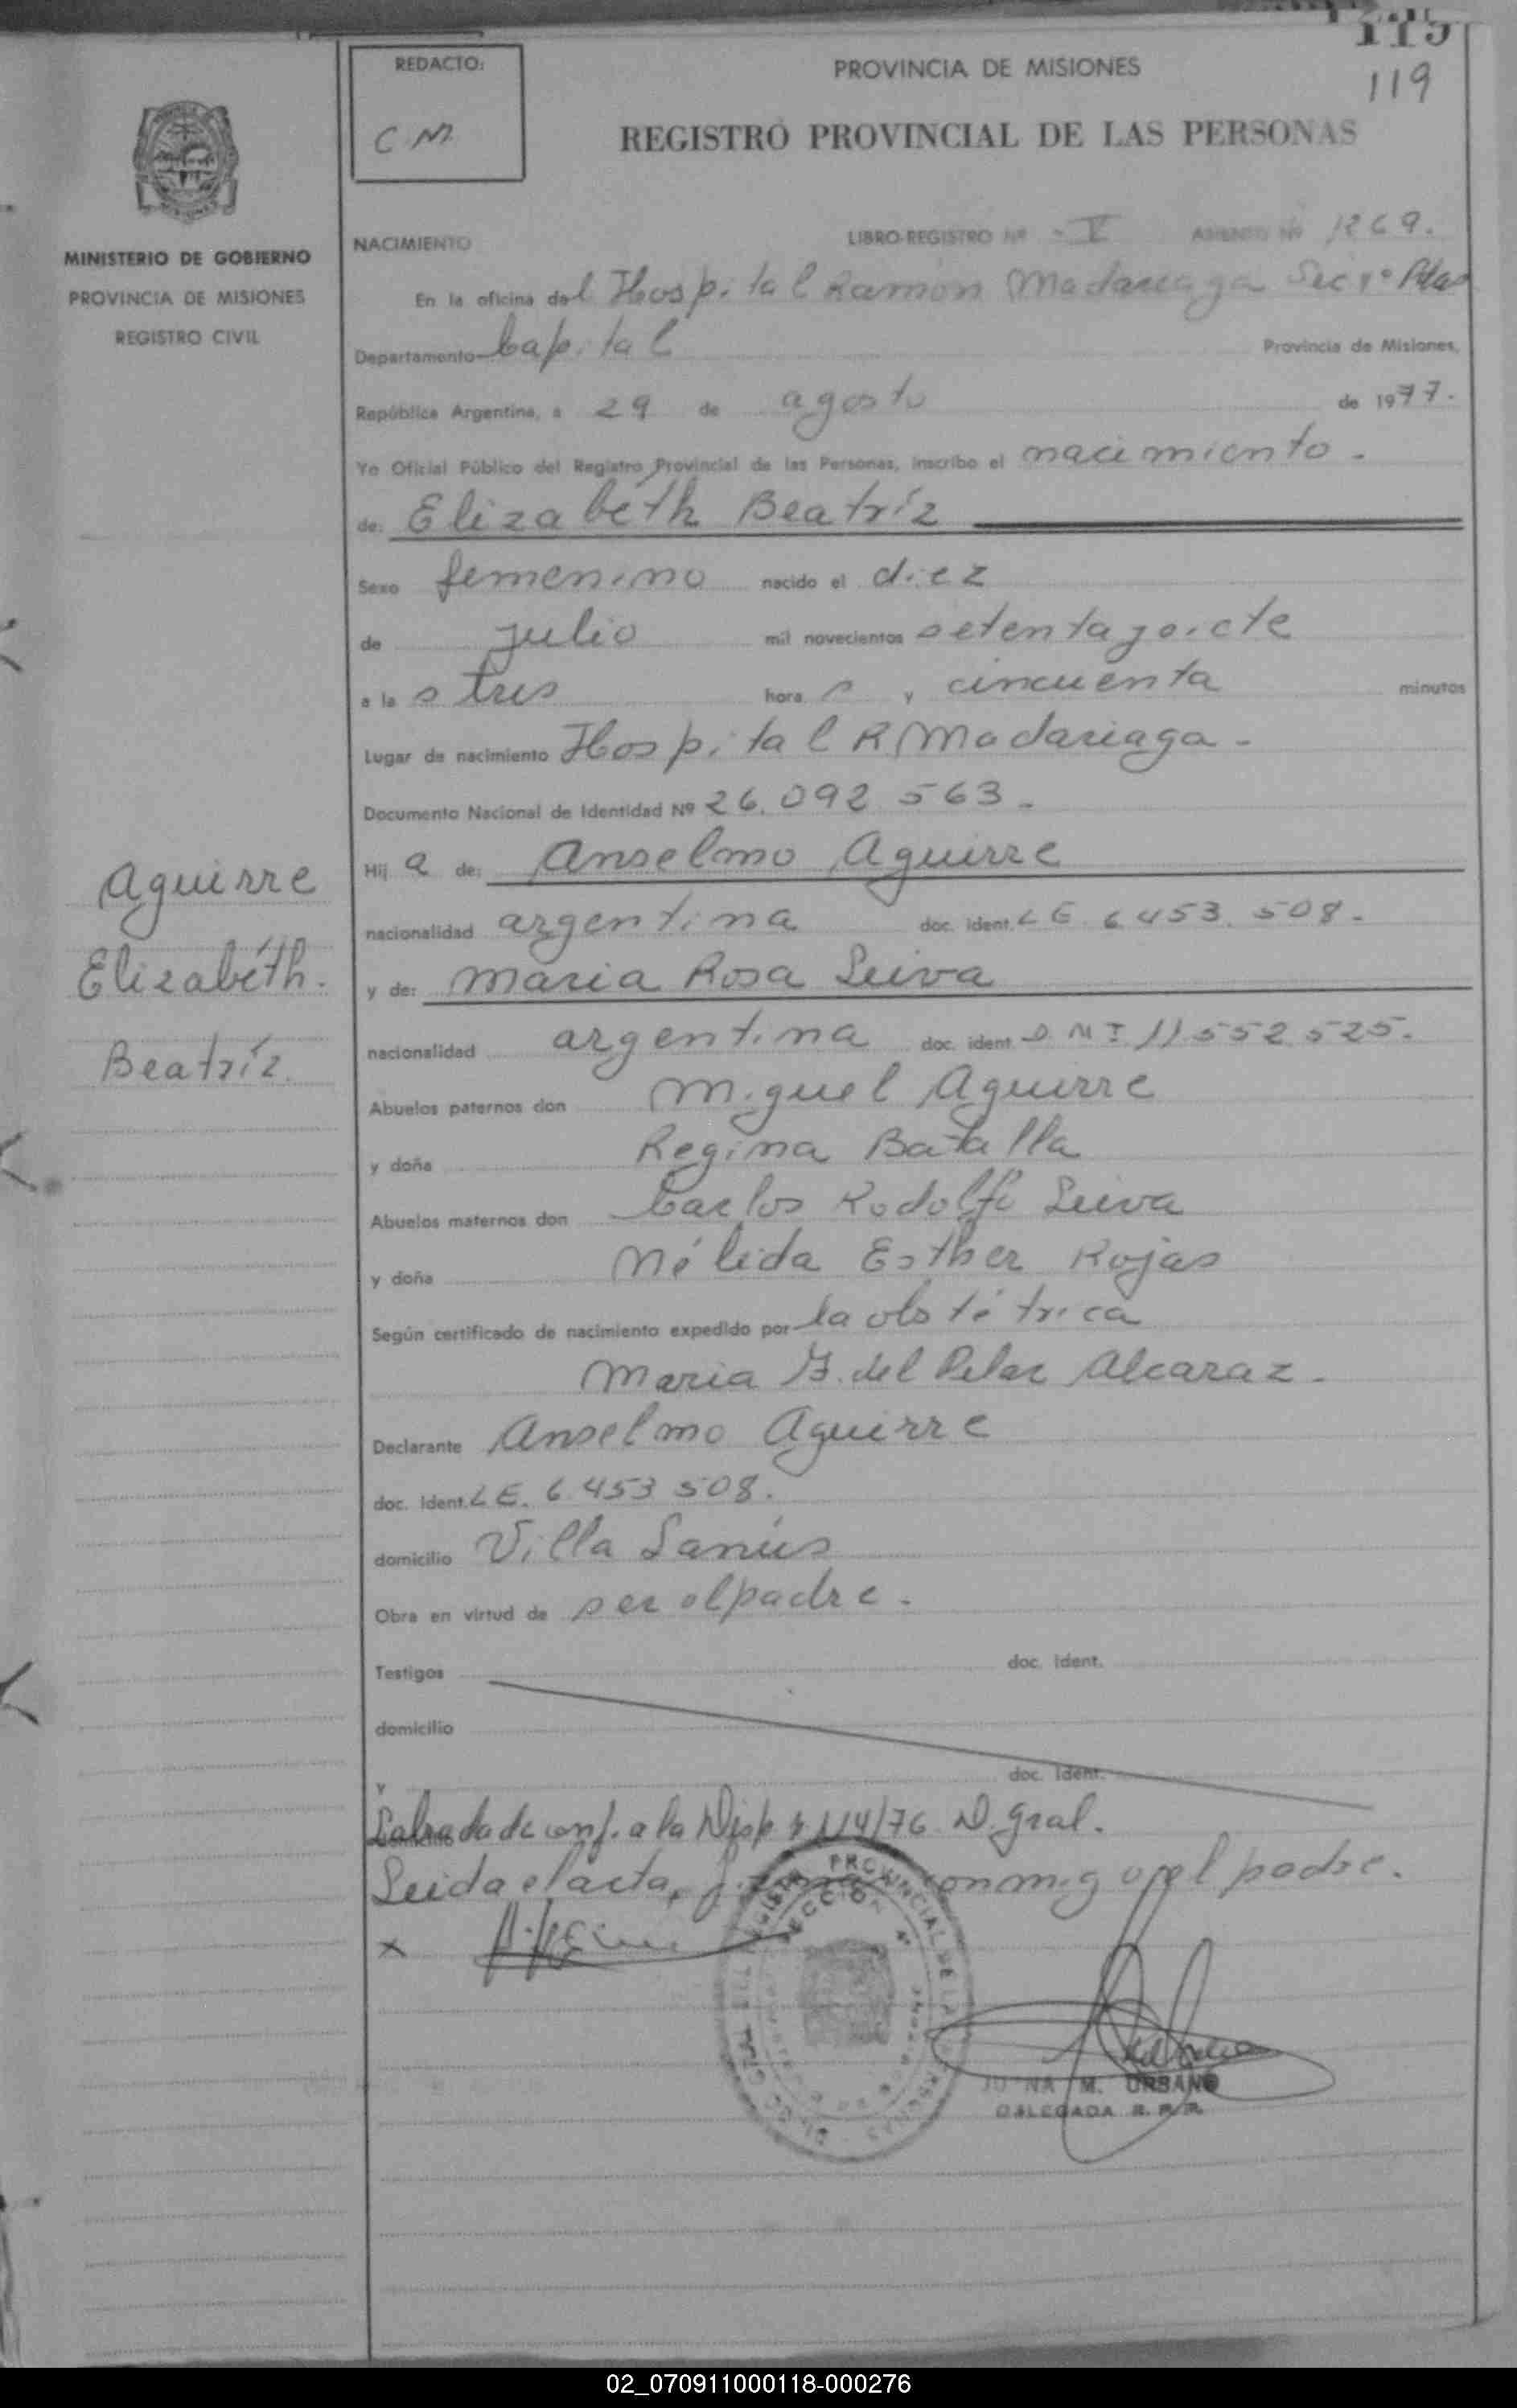 115
119
REDACTO:
C M.
PROVINCIA DE MISIONES
REGISTRO PROVINCIAL DE LAS PERSONAS
MINISTERIO DE GOBIERNO
PROVINCIA DE MISIONES
REGISTRO CIVIL
NACIMIENTO LIBRO-REGISTRO Nº - V ASIENTO Nº 1269.
En la oficina del Hospital Ramon Madariaga Sec 1º Pdas
Departamento Capital Provincia de Misiones,
República Argentina, a 29 de agosto de 1977.
Yo Oficial Público del Registro Provincial de las Personas, inscribo el nacimiento.
de: Elizabéth Beatríz
Sexo femenino nacido el diez
de julio mil novecientos setentaysiete
a las tres horas y cincuenta minutos
Lugar de nacimiento Hospital R Madariaga -
Documento Nacional de Identidad Nº 26.092.563.
Hija de: Anselmo Aguirre
nacionalidad argentina doc. ident. L E 6.453.508.
y de: Maria Rosa Leiva
nacionalidad argentina doc. ident. D.N.I 11.552.525.
Abuelos paternos don Miguel Aguirre
y doña Regina Batalla
Abuelos maternos don Carlos Rodolfo Leiva
y doña Nélida Esther Rojas
Según certificado de nacimiento expedido por la obstétrica
Maria G. del Pilar Alcaraz.
Declarante Anselmo Aguirre
doc. ident. L E. 6.453 508.
domicilio Villa Lanús
Obra en virtud de ser el padre.
Testigos doc. ident.
domicilio
y doc. ident.
Labrada de conf. a la Disp 114/76 D. Gral.
Leida el acta, firman conmigo, el padre.
x
Aguirre
Elizabéth.
Beatríz.
PROVINCIAL DE LAS PERSONAS
SECCION
JUANA M. URBANO
DELEGADA R. P. P.
02_070911000118-000276